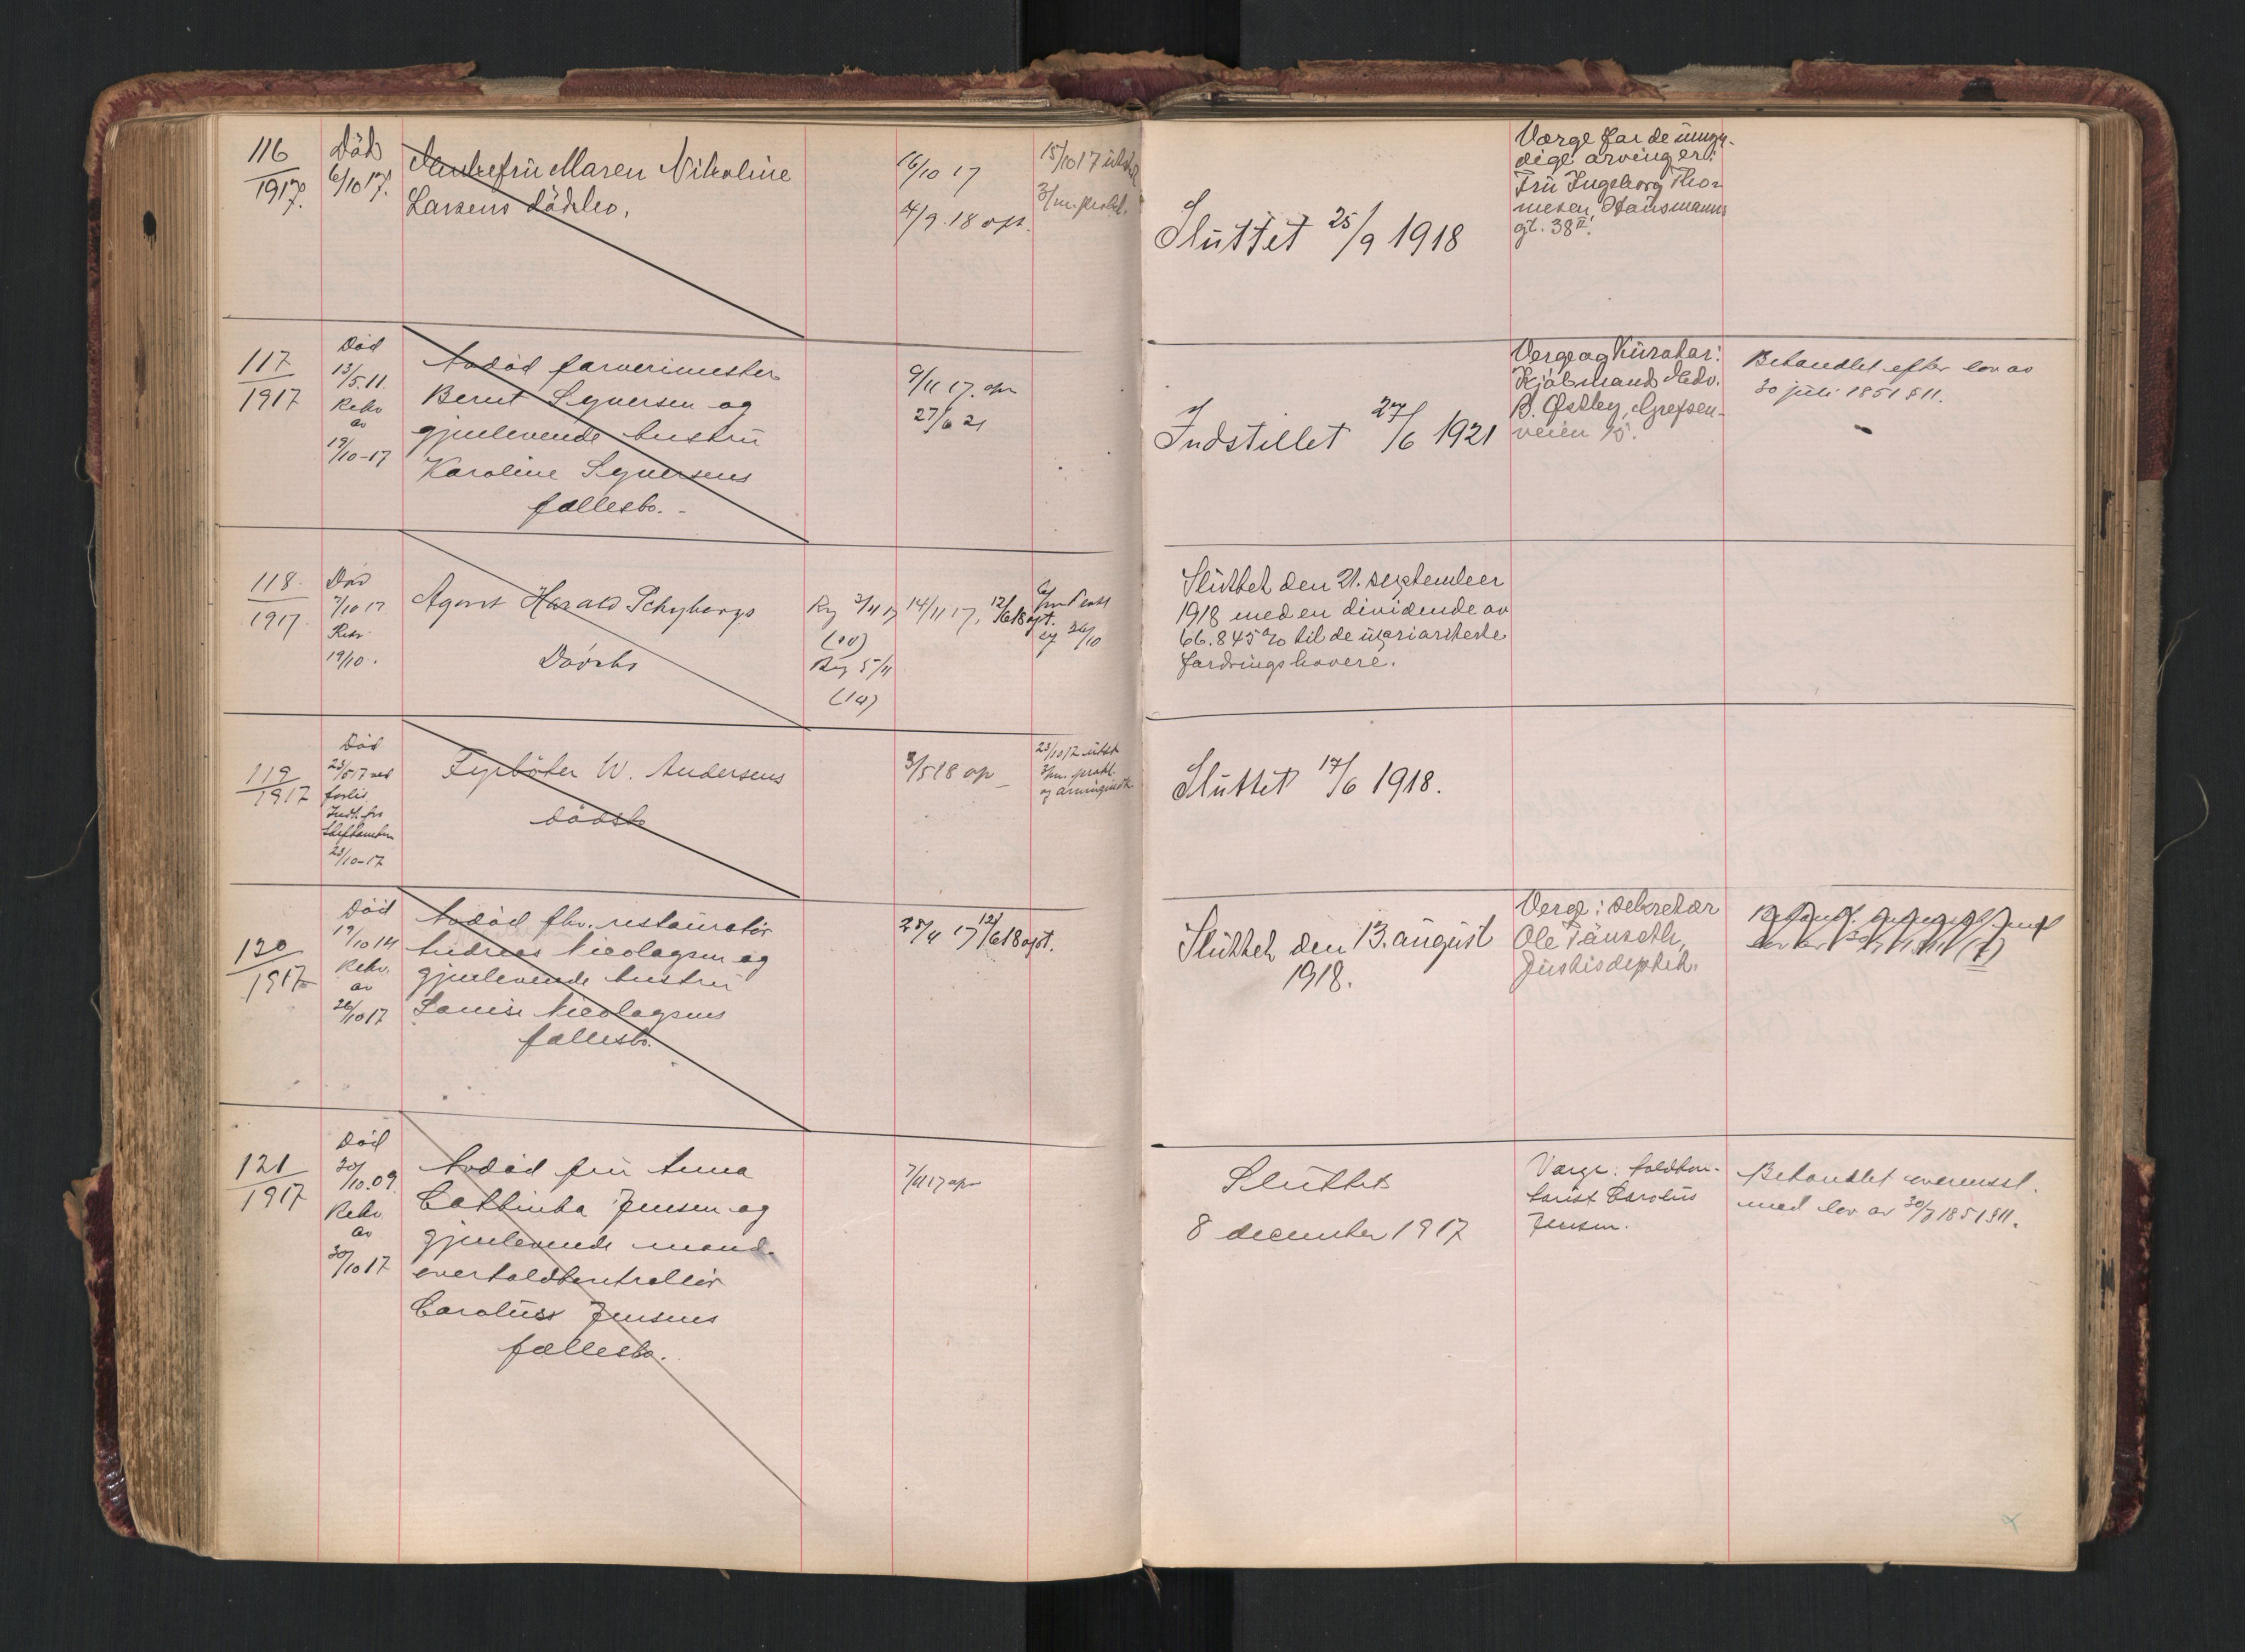 116
1917.
Död
6/10 17.
Enkefru Maren Nikoline
Larsens dödsbo.
16/10 17
4/9.18 opt.
15/10 17 utst.
3/m. prokl.
Sluttet 25/9 1918
Værge for de umyn-
dige arvinger:
Fru Ingeborg Thor-
mesen, Hausmanns
gt. 38 II.
117
1917
Död
13/5.11.
Rekv
av
19/10-17
Avdöd farverimester
Bernt Syversen og
gjenlevende hustru
Karoline Syversens
fællesbo.-
9/11 17. opr
27/6 21
Indstillet 27/6 1921
Verge og Kurator:
Kjöbmand Edv.
B. Østby, Grefsen-
veien 15.
Behandlet efter lov av
30 juli 1851 § 11.
118.
1917.
Död
2/10 17
Rekv.
19/10.
Agent Harald Schybergs
Dödsbo
Reg 3/11 17
(10)
Reg 5/11
(10)
14/11 17, 12/6 18 opt.
og 26/10
Sluttet den 21. september
1918 med en dividende av
66.845% til de uprioriterte
fordringshavere.
119
1917
Död
23/5 17 ved
forlis
Indb. fra
Skifteretten
23/10-17
Fyrböter W. Andersens
dödsbo
3/5 18 op
23/10 17 utst
3/m. prokl.
og arvingindk.
Sluttet 17/6 1918.
120
1917
Död
19/10 14
Rekv.
av
26/10 17
Avdöd fhv. restauratör
Andreas Nicolaysen og
gjenlevende hustru
Louise Nicolaysens
fællesbo.
28/11 17 12/6 18 opt.
Sluttet den 13. august
1918.
Verge: sekretær
Ole Tauseth,
Justisdeptet.
121
1917
Död
20/10.09
Rekv.
av
30/10 17
Avdöd fru Anna
Cathinka Jensen og
gjenlevende mand.
overtoldkontrollör
Carolius Jensens
fællesbo.
7/11 17 opr
Sluttet
8 december 1917
Værge: toldkon-
torist Carolus
Jensen.
Behandlet overensst.
med lov av 30/7 1851 § 11.